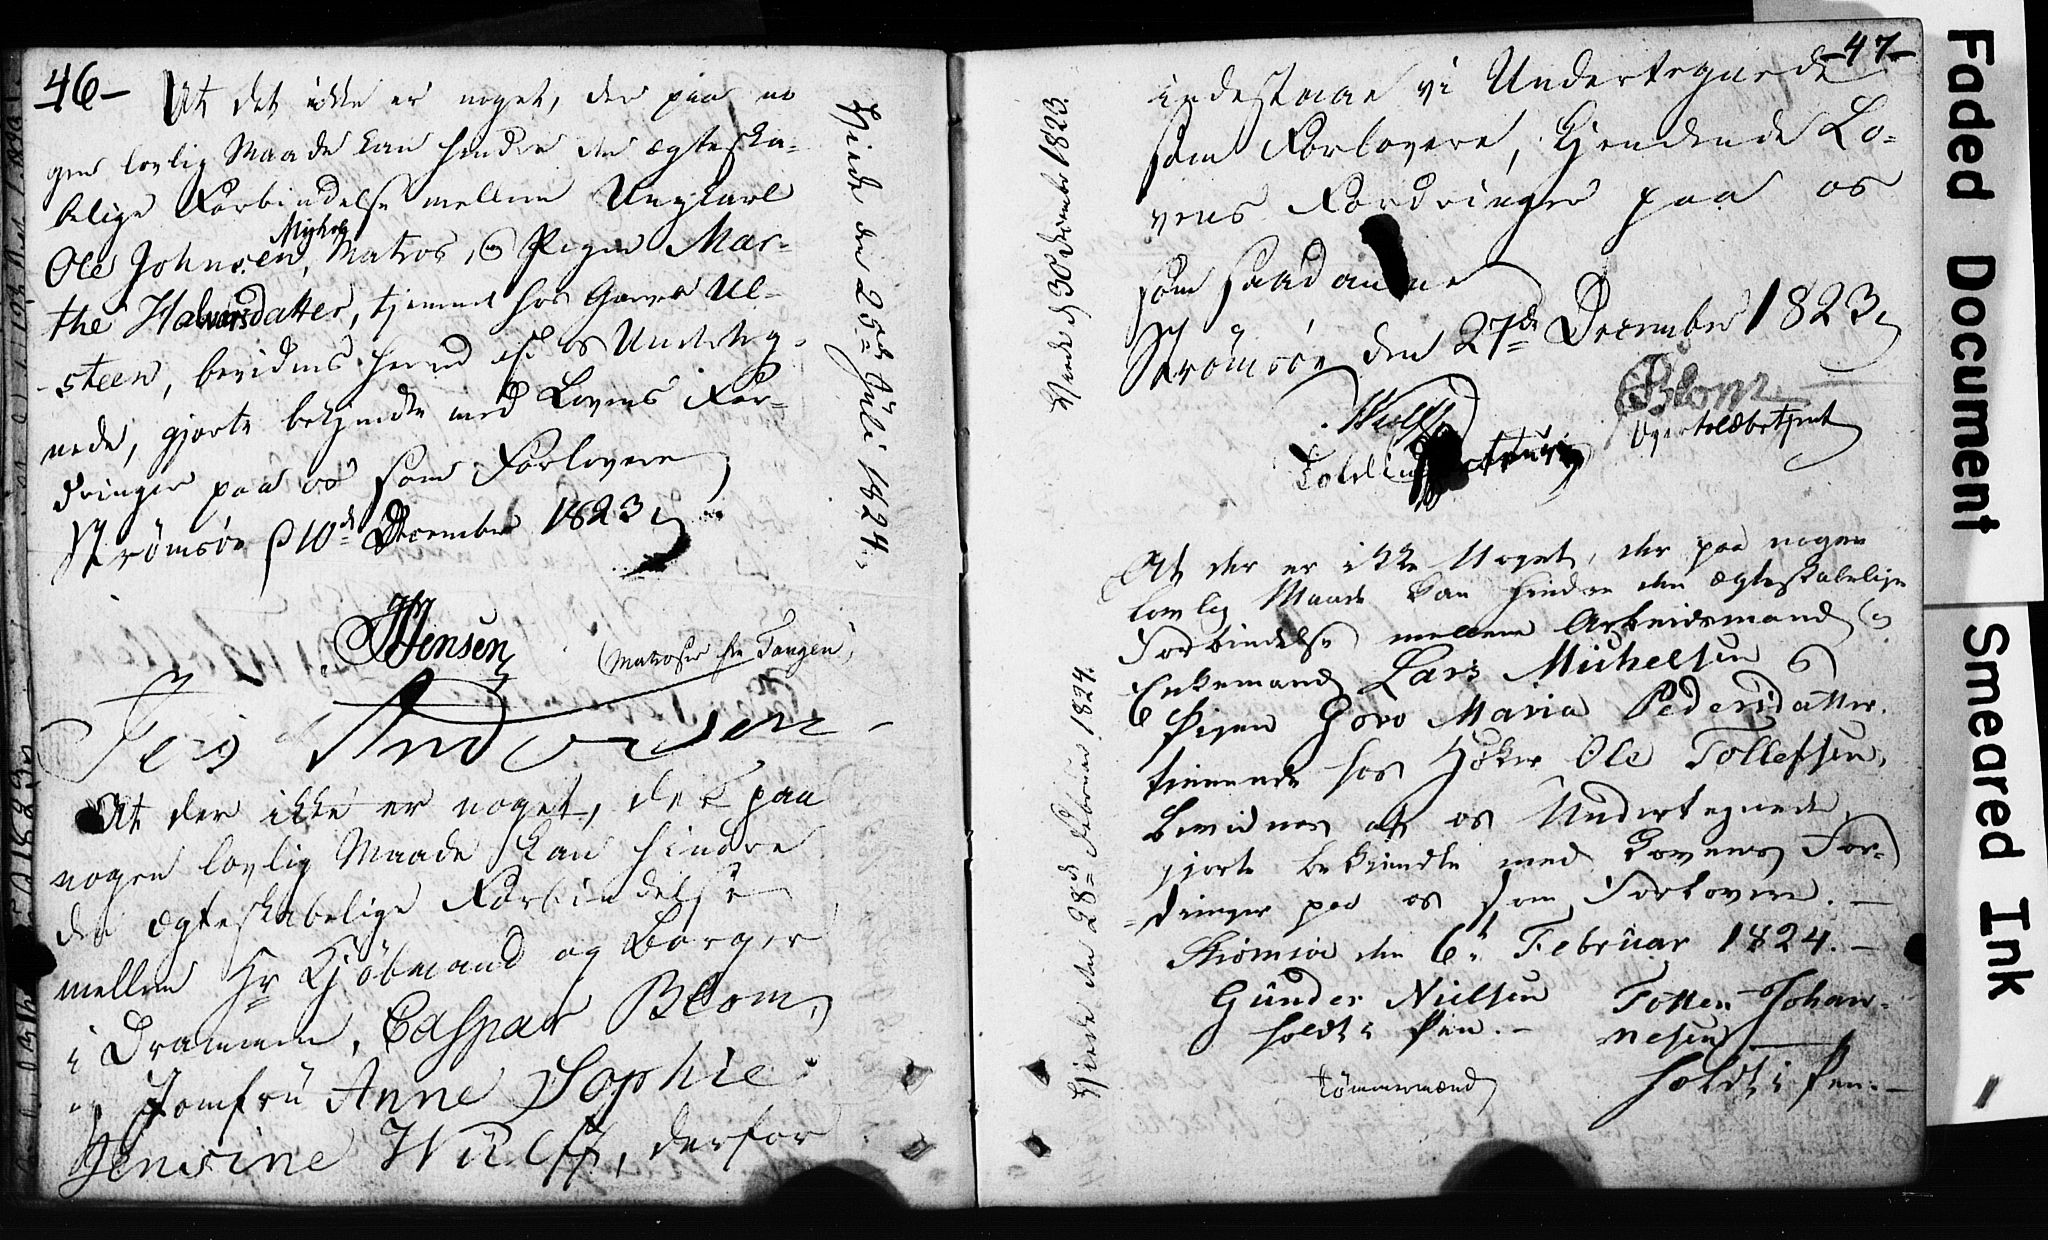 46-
At det ikke er noget, der paa no
gen lovlig Maade kan hindre den ægteska-
belige Forbindelse mellem Ungkarl
Ole Johnsen, Matros, og Pigen Mar-
the Halvorsdatter, tjenende hos Garver Ul-
steen, bevidnes herved af os Underteg-
nede, gjorte bekjendte med Lovens For-
dringer paa os som Forlovere
Strømsøe d 10de December 1823
Jensen
(Matroser fra Tangen)
Jens Andersen
Viede den 25de Juli 1824.
At der ikke er noget, der paa
nogen lovlig Maade kan hindre
den ægteskabelige Forbindelse
mellem Hr Kjøbmand og Borger
i Drammen, Caspar Blom,
og Jomfru Anne Sophie
Jensine Wulff, derfor
-47-
indestaae vi Undertegnede
som Forlovere, kjendende Lo-
vens Fordringer paa os
som saadanne
Strømsøe den 27de December 1823
Wulff
Blom
Viede d 30 December 1823.
At der er ikke Noget, der paa nogen
lovlig Maade kan hindre den ægteskabelige
Forbindelse mellem Arbeidsmand og
Enkemand Lars Michelsen og
Pigen Goro Maria Pedersdatter,
tienende hos Høker Ole Tollefsen,
bevidnes af os Undertegnede,
gjorte bekjendte med Lovens For-
dringer paa os som Forlovere.-
Strømsøe den 6te Februar 1824.-
Gunder Nielsen
holdt i Pen.-
Totten Johan-
nesen
holdt i Pen.-
tømmermænd
Viede den 28de Februar 1824.
Faded Document
Smeared Ink